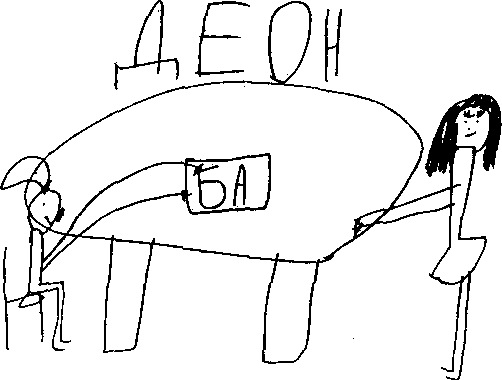 ДЕОН
БА